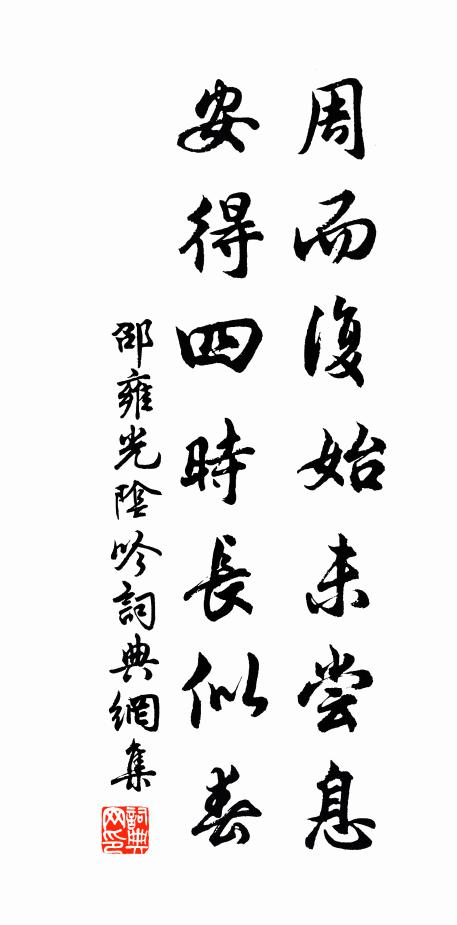 周而復始未尝息
安得四時長似春
邵雍光陰吟詞典網集
詞典網印